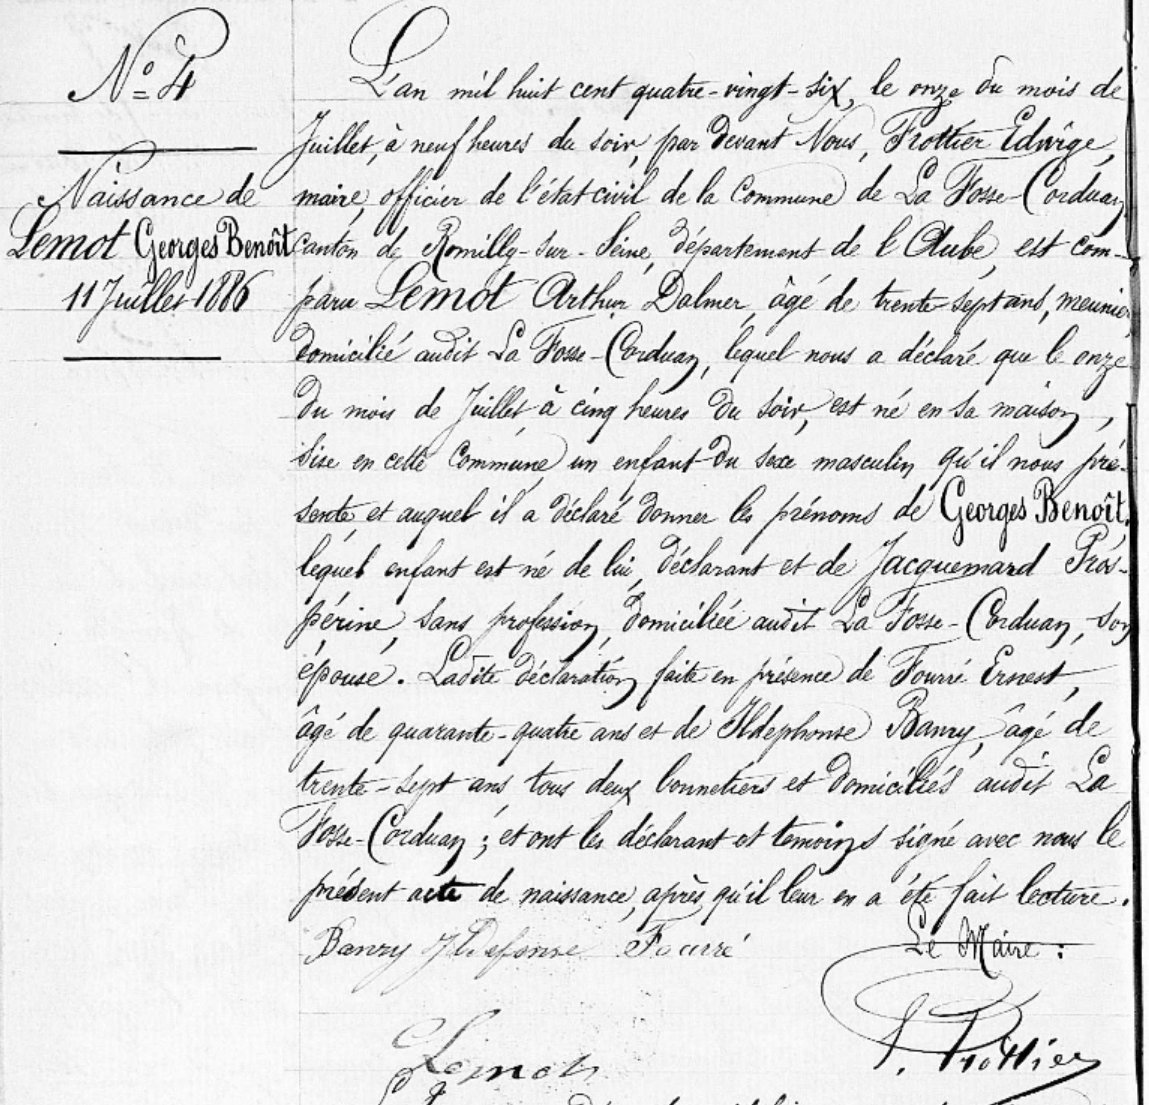 N° 4
Naissance de
Lemot Georges Benoît
11 Juillet 1886
L'an mil huit cent quatre-vingt-six, le onze du mois de
Juillet, à neuf heures du soir, par devant Nous, Frottier Edwige,
maire, officier de l'état civil de la Commune de La Fosse-Corduan,
canton de Romilly-sur-Seine, département de l'Aube, est com-
paru Lemot Arthur Dalmer, âgé de trente-sept ans, meunier
domicilié audit La Fosse-Corduan, lequel nous a déclaré que le onze
du mois de Juillet, à cinq heures du soir, est né en sa maison,
sise en cette commune, un enfant du sexe masculin qu'il nous pré-
sente, et auquel il a déclaré donner les prénoms de Georges Benoît,
lequel enfant est né de lui, déclarant et de Jacquemard Pros-
périne, sans profession, domiciliée audit La Fosse-Corduan, son
épouse. Ladite déclaration faite en présence de Fourré Ernest,
âgé de quarante-quatre ans et de Ildephonse Banry, âgé de
trente-sept ans tous deux bonnetiers et domiciliés audit La
Fosse-Corduan; et ont les déclarant et témoins signé avec nous le
présent acte de naissance, après qu'il leur en a été fait lecture.
Banry Ildefonse Fourré Le Maire :
Lemot
Frottier